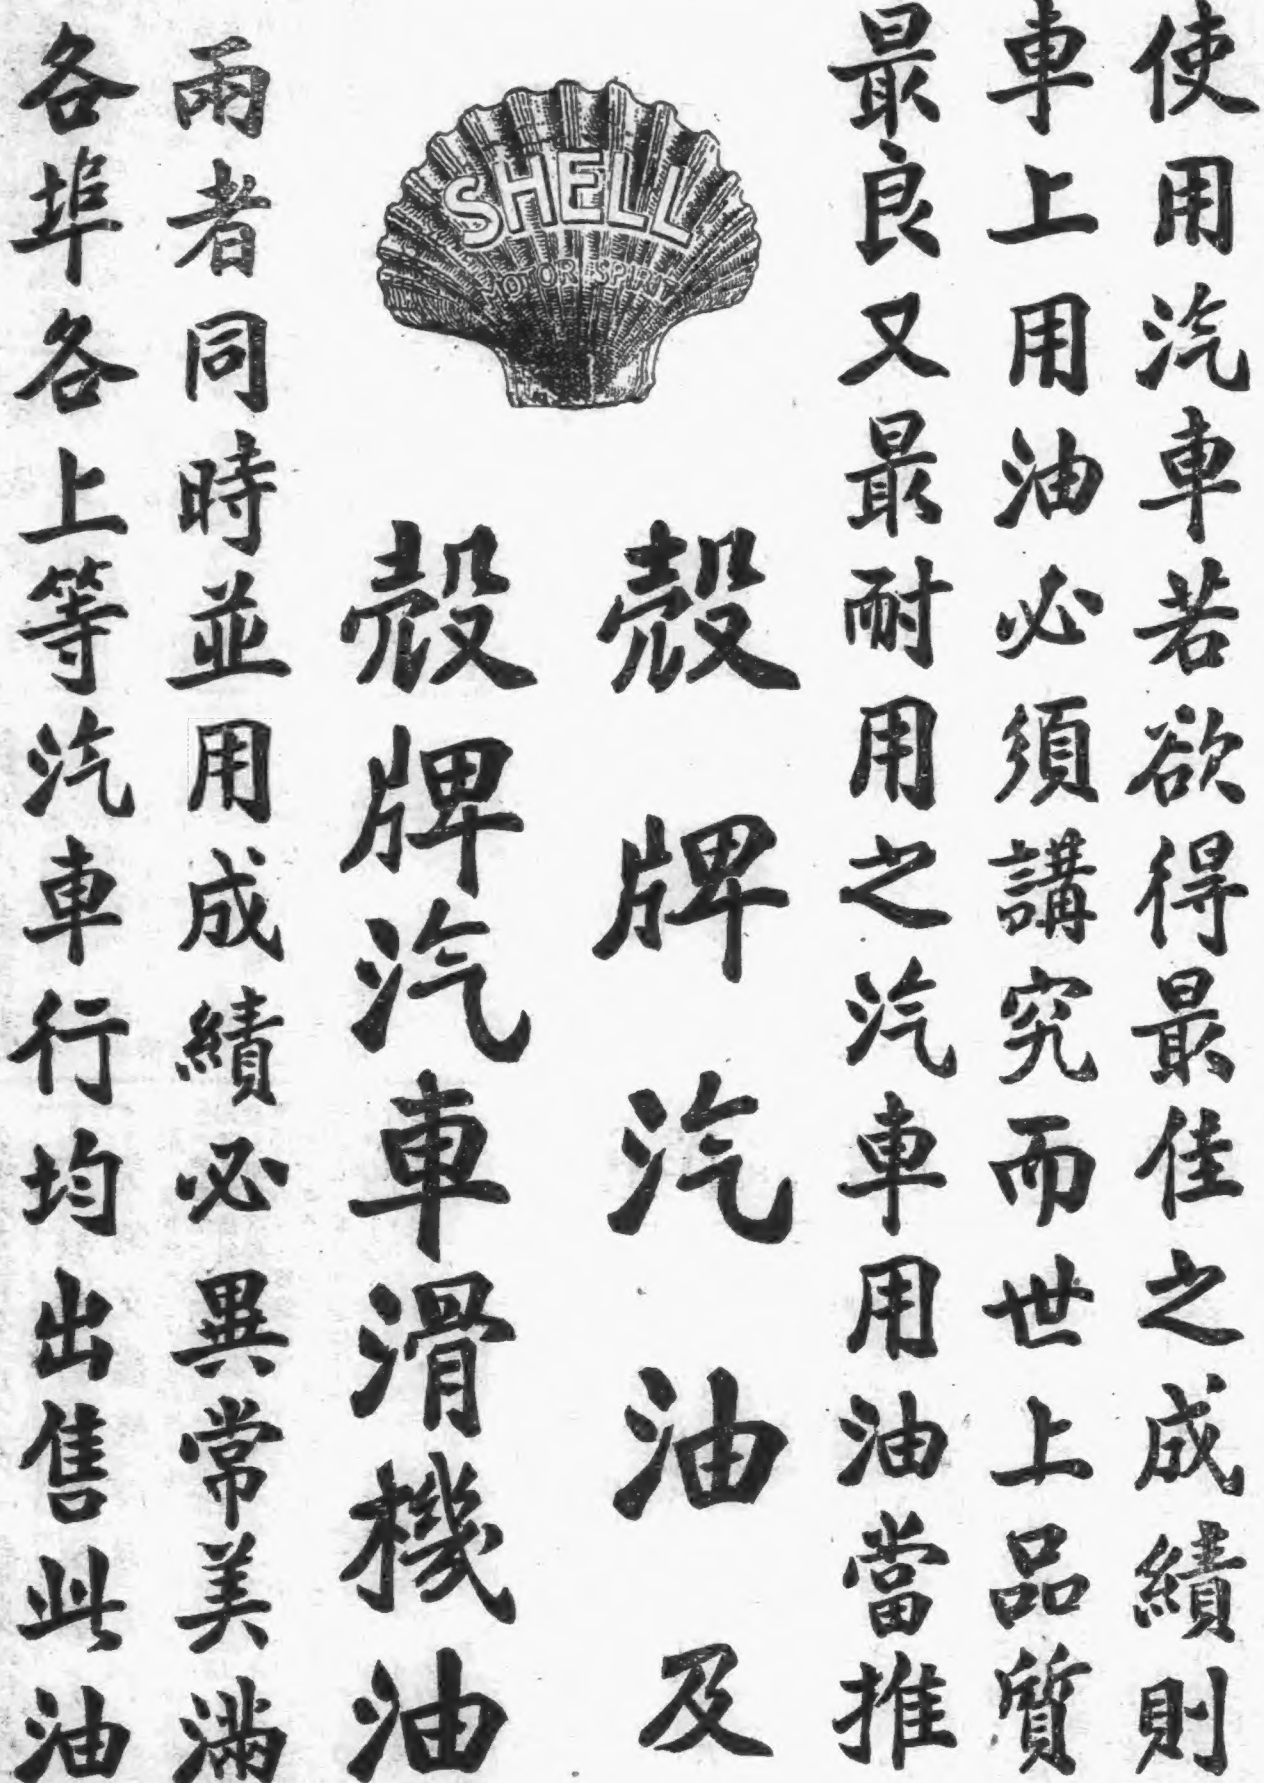 使用汽車若欲得最佳之成績則
車上用油必須講究而世上品質
最良又最耐用之汽車用油當推
SHELL
MOTOR SPIRIT
殼牌汽油及
殼牌汽車滑機油
兩者同時並用成績必異常美滿
各埠各上等汽車行均出售此油